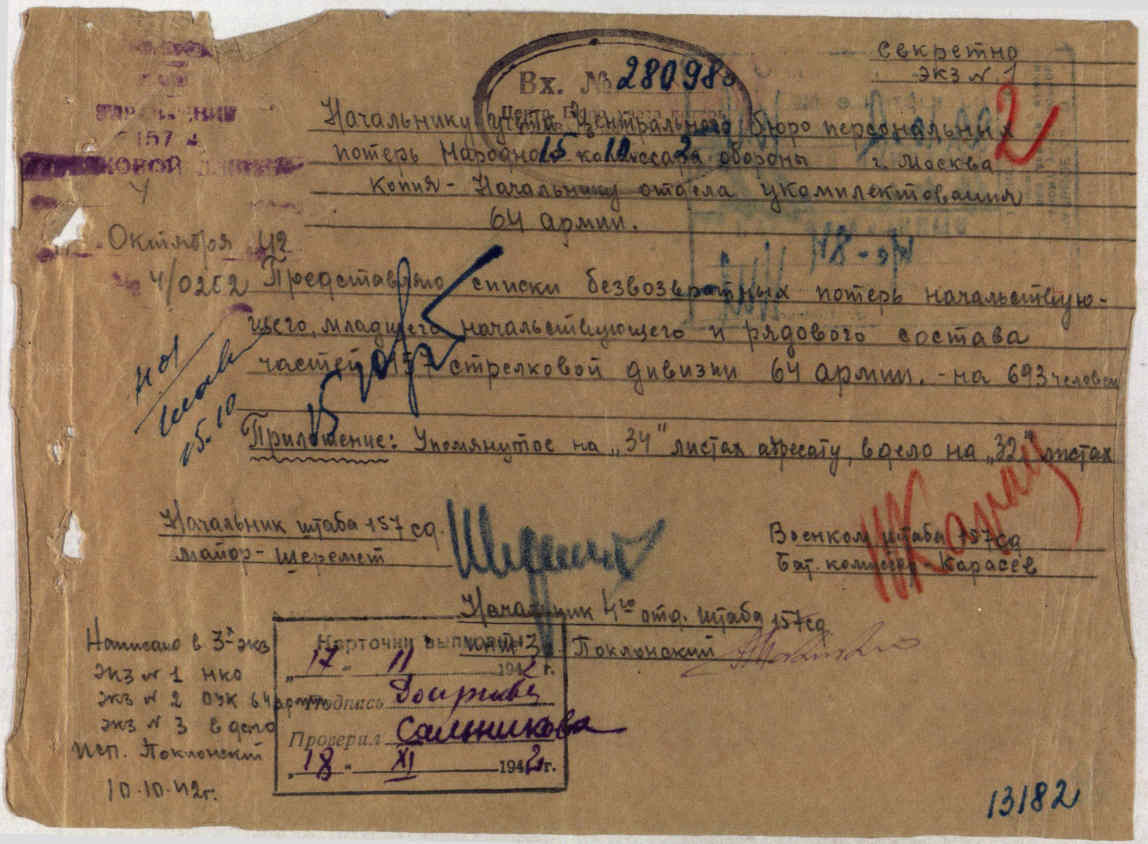 Секретно
экз № 1
Вх. № 28098
2
Начальнику учета Центрального бюро персональных
потерь Народного комиссара обороны г. Москва
15 10 2
Копия - Начальнику отдела укомплектования
64 армии.
УПРАВЛЕНИЯ
157
КОВОЙ
Октября 42
4/0252
Представляю списки безвозвратных потерь начальствую-
щего, младшего начальствующего и рядового состава
частей 157 стрелковой дивизии 64 армии. - на 693 человек
15.10
Приложение: Упомянутое на „34" листах адресату, в дело на „32" листах
Начальник штаба 157 сд.
майор - Шеремет
Военком штаба 157 сд
Бат. комиссар - Карасев
Начальник 4го отд. штаба 157 сд
Поклонский
Написано в 3х экз
экз № 1 нко
экз № 2 ОУК 64 арм
экз № 3 в дело
Исп. Поклонский
10.10.42г.
Карточки выписаны
„17" 11 1942 г.
Подпись
Проверил Сальникова
„18" XI 1942 г.
13182